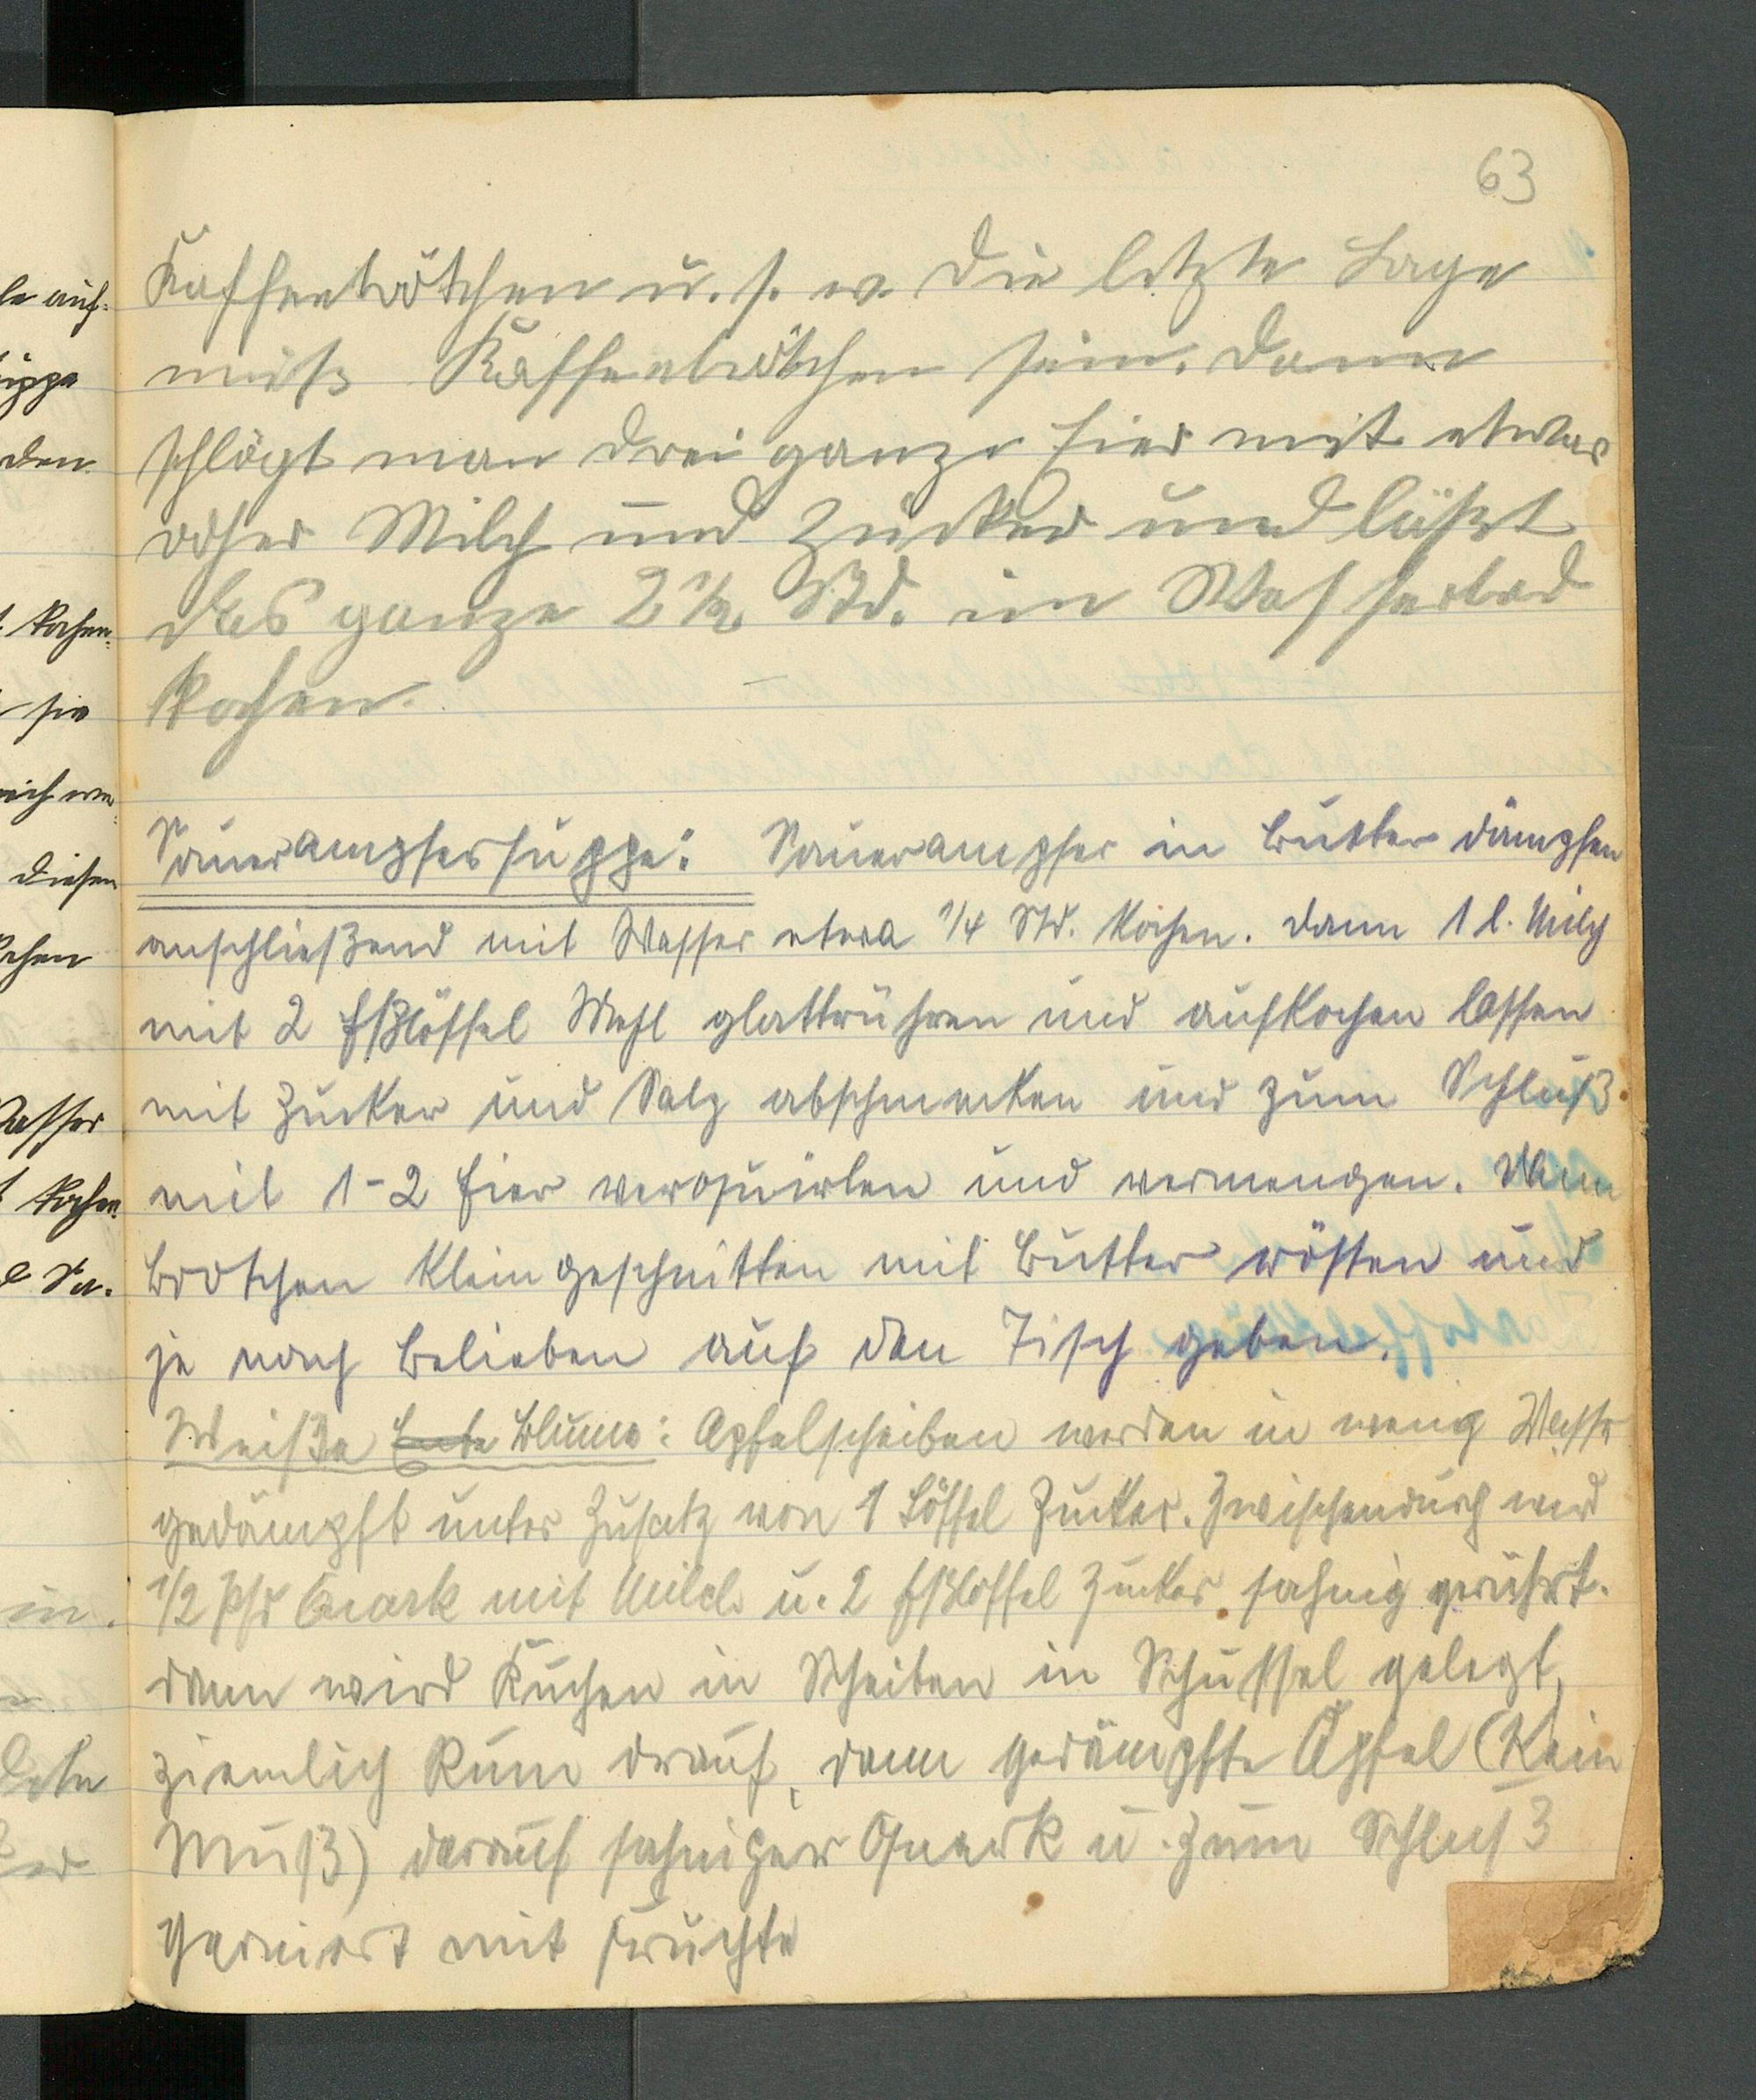 63
Kaffeebrötchen u. s. w. Die letzte Lage
muß Kaffeebrötchen sein. Dann
schlägt man drei ganze Eier mit etwas
roher Milch und Zucker und läßt
das ganze 2 1/2 Std. im Wasserbad
kochen.
Sauerampfersuppe: Sauerampfer in Butter dämpfen
anschließend mit Wasser etwa 1/4 Std. kochen. Dann 1 l. Milch
mit 2 Eßlöffel Mehl glattrühren und aufkochen lassen
mit Zucker und Salz abschmecken und zum Schluß
mit 1-2 Eier verquirlen und vermengen. Dann
Brötchen klein geschnitten mit Butter rösten und
je nach Belieben auf den Tisch geben.
Weiße Blume: Apfelscheiben werden in wenig Wasser
gedämpft unter Zusatz von 1 Löffel Zucker. Zwischendurch wird
1/2 Pfd Quark mit Milch u. 2 Eßlöffel Zucker sahnig gerührt.
dann wird Kuchen in Scheiben in Schüssel gelegt,
ziemlich Rum drauf, dann gedämpfte Äpfel (Kein
Muß) darauf sahniger Quark u. zum Schluß
garniert mit Früchte
le auf-
uppe
den
t. kochen.
sie
diesen
chen
Wasser
t kochen.
in.